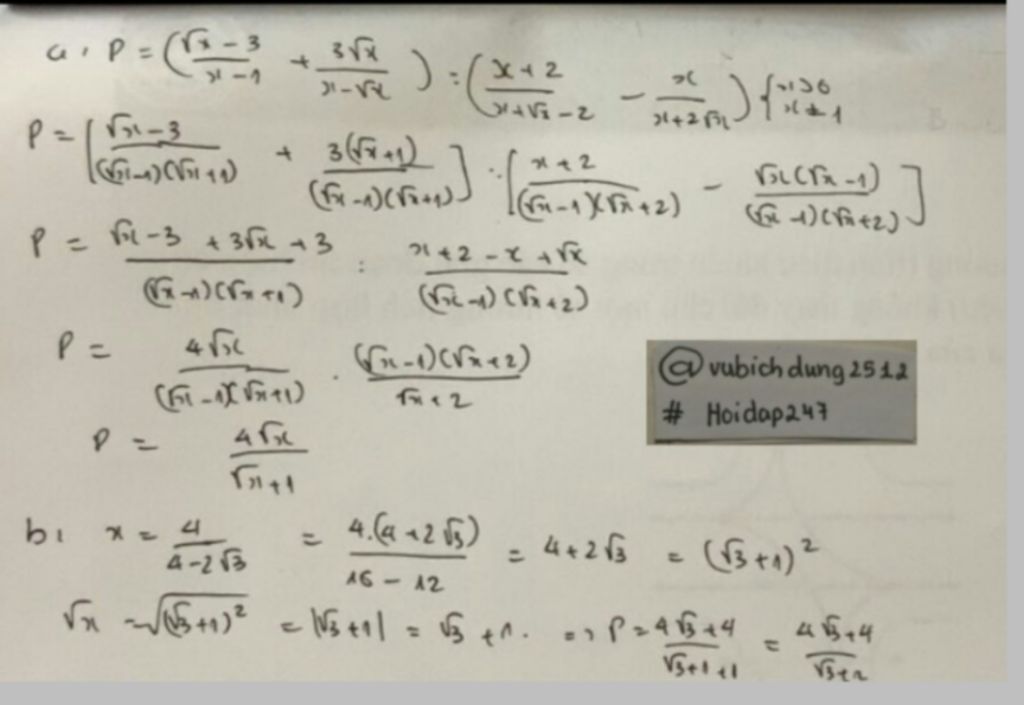 a, P = (√x - 3 / x - 1 + 3√x / x - √x) : (x + 2 / x + √x - 2 - x / x + 2√x) { x > 0 x ≠ 1
P = [√x - 3 / (√x - 1)(√x + 1) + 3(√x + 1) / (√x - 1)(√x + 1)] : [x + 2 / (√x - 1)(√x + 2) - √x(√x - 1) / (√x - 1)(√x + 2)]
P = √x - 3 + 3√x + 3 / (√x - 1)(√x + 1) : x + 2 - x + √x / (√x - 1)(√x + 2)
P = 4√x / (√x - 1)(√x + 1) . (√x - 1)(√x + 2) / √x + 2
@vubichdung2512
# Hoidap247
P = 4√x / √x + 1
b, x = 4 / 4 - 2√3 = 4.(4 + 2√3) / 16 - 12 = 4 + 2√3 = (√3 + 1)²
√x = √(√3 + 1)² = |√3 + 1| = √3 + 1. => P = 4√3 + 4 / √3 + 1 + 1 = 4√3 + 4 / √3 + 2